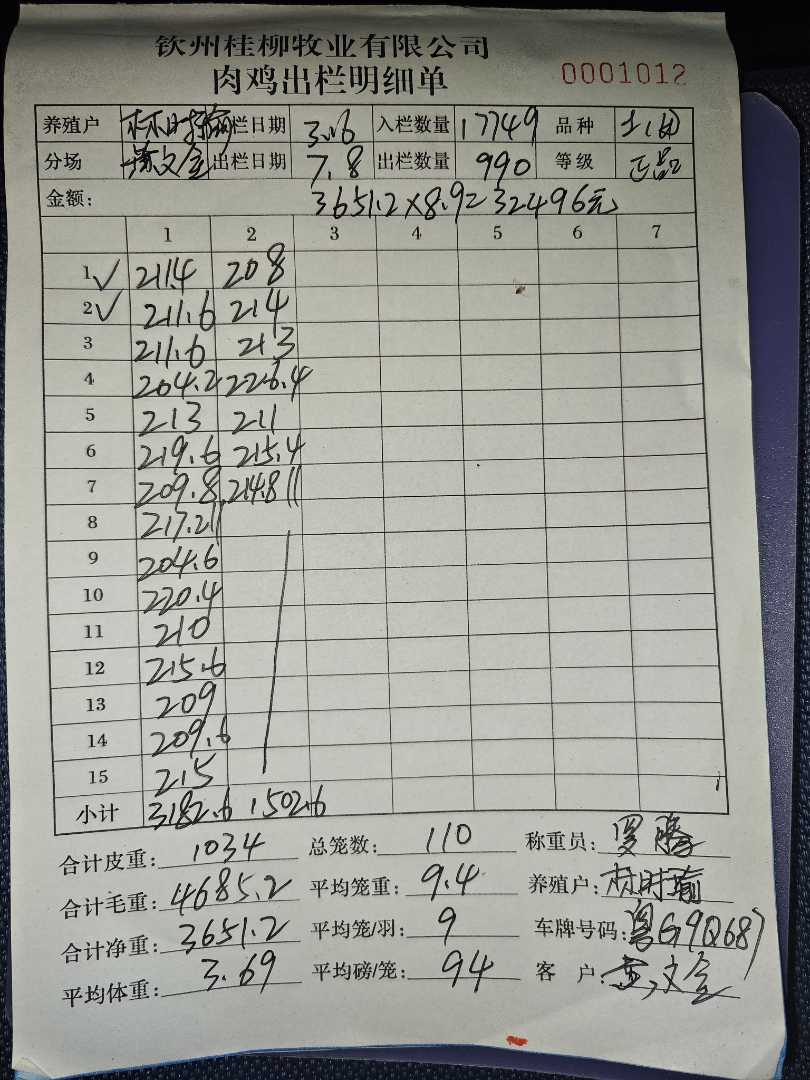 钦州桂柳牧业有限公司
肉鸡出栏明细单 0001012
养殖户 林时瑜 入栏日期 3.16 入栏数量 17749 品种
分场 黄文金 出栏日期 7.8 出栏数量 990 等级 正品
金额: 3651.2×8.9=32496元
1 2 3 4 5 6 7
1 ✓ 211.4 208
2 ✓ 211.6 214
3 211.6 213
4 204.2 226.4
5 213 211
6 219.6 215.4
7 209.8 214.8 11
8 217.2 11
9 204.6
10 220.4
11 210
12 215.6
13 209
14 209.6
15 215
小计 3182.6 1502.6
合计皮重: 1034 总笼数: 110 称重员: 罗腾
合计毛重: 4685.2 平均笼重: 9.4 养殖户: 林时瑜
合计净重: 3651.2 平均笼/羽: 9 车牌号码: 粤G9Q687
平均体重: 3.69 平均磅/笼: 94 客 户: 黄文金